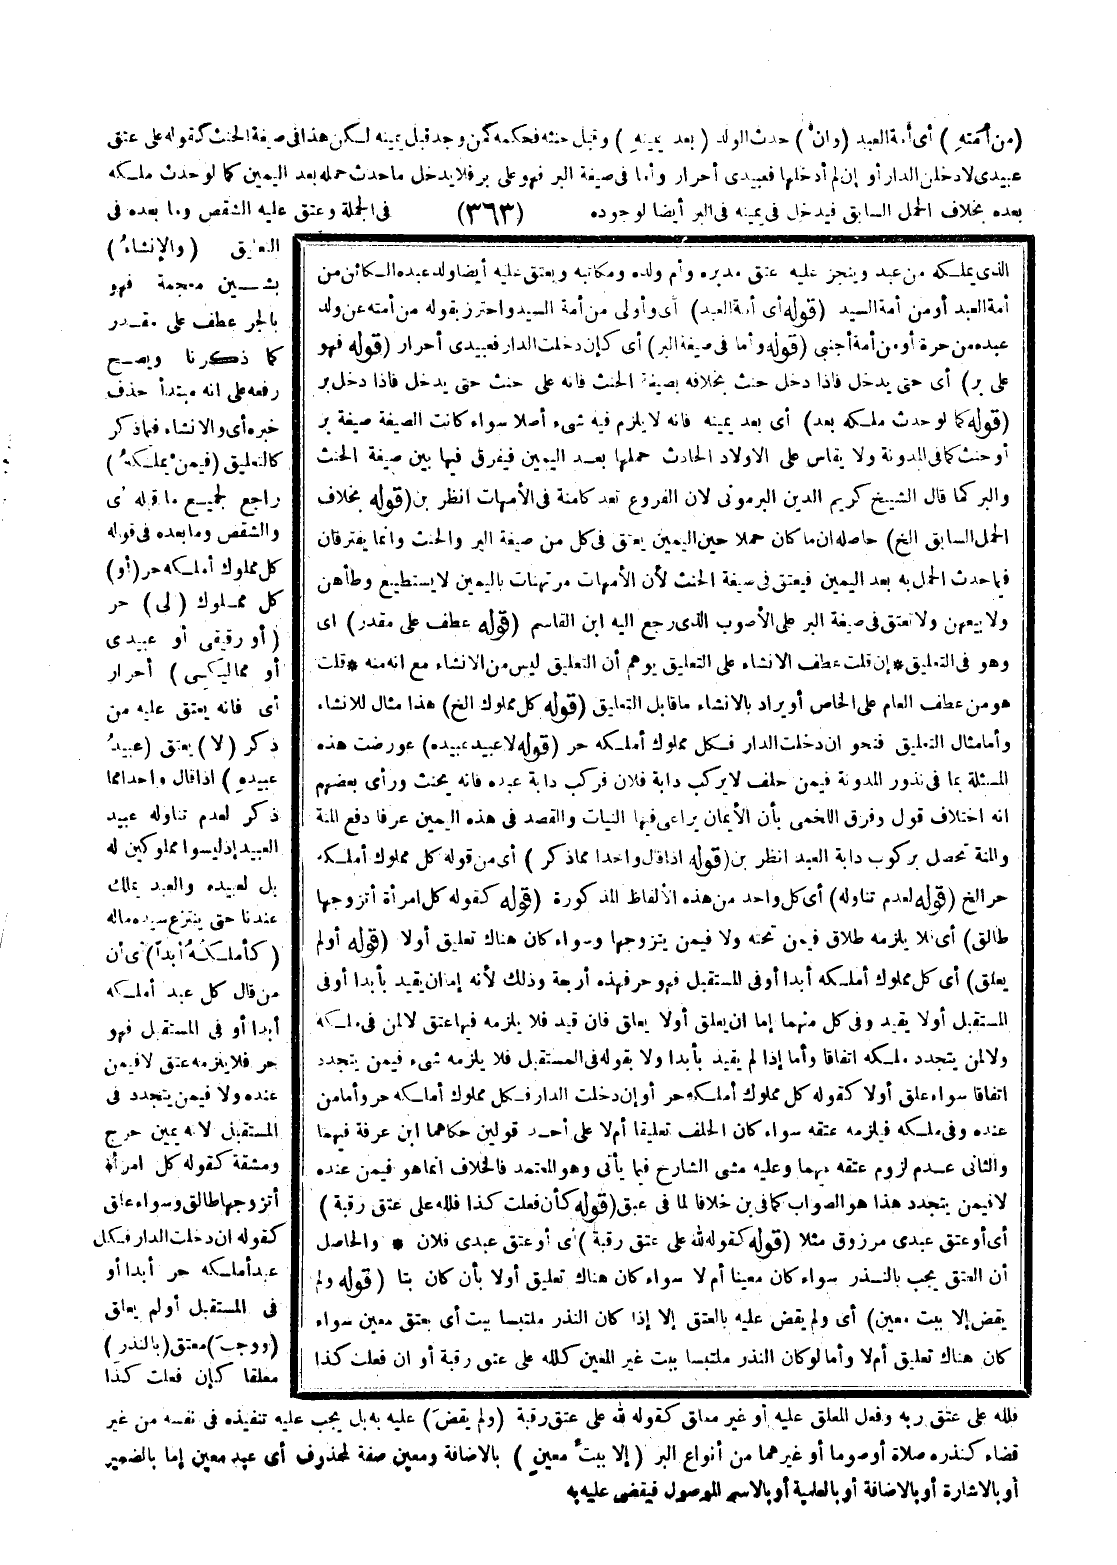 (من أمته) أى أمة العبد (وان) حدث الولد (بعد يمينه) وقبل حنثه فحكمه كمن وجد قبل يمينه لكن هذا فى صيغة الحنث كقوله على عتق
عبيدى لادخلن الدار أو إن لم أدخلها فعبيدى أحرار وأما فى صيغة البر فهو على بر فلا يدخل ما حدث حمله بعد اليمين كما لو حدث ملكه
بعده بخلاف الحمل السابق فيدخل فى يمينه فى البر أيضا لوجوده (٣٦٣) فى الجملة وعتق عليه الشقص وما بعده فى
التعليق (والإنشاء)
بشين معجمة فهو
بالجر عطف على مقدر
كما ذكرنا ويصح
رفعه على انه مبتدأ حذف
خبره أى والانشاء فيما ذكر
كالتعليق (فيمن يملكه)
راجع لجميع ما قبله أى
والشقص وما بعده فى قوله
كل مملوك أملكه حر (أو)
كل مملوك (لى) حر
(أو رقيقى أو عبيدى
أو مماليكى) أحرار
أى فانه يعتق عليه من
ذكر (لا) يعتق (عبيد
عبيده) اذا قال واحدا مما
ذكر لعدم تناوله عبيد
العبيد إذ ليسوا مملوكين له
بل لعبيده والعبد يملك
عندنا حتى ينتزع سيده ماله
(كأملكه أبدا) أى أن
من قال كل عبد أملكه
أبدا أو فى المستقبل فهو
حر فلا يلزمه عتق لا فيمن
عنده ولا فيمن يتجدد فى
المستقبل لانه يمين حرج
ومشقة كقوله كل امرأة
أتزوجها طالق وسواء علق
كقوله ان دخلت الدار فكل
عبد أملكه حر أبدا أو
فى المستقبل أو لم يعلق
(ووجب) معتق (بالنذر)
معلقا كإن فعلت كذا
الذى يملكه من عبد وينجز عليه عتق مدبره وأم ولده ومكاتبه ويعتق عليه أيضا ولد عبده الكائن من
أمة العبد أو من أمة السيد (قوله أى أمة العبد) أى وأولى من أمة السيد واحترز بقوله من أمته عن ولد
عبده من حرة أو من أمة أجنبي (قوله وأما فى صيغة البر) أى كإن دخلت الدار فعبيدى أحرار (قوله فهو
على بر) أى حتى يدخل فاذا دخل حنث بخلافه بصيغة الحنث فانه على حنث حتى يدخل فاذا دخل بر
(قوله كما لو حدث ملكه بعد) أى بعد يمينه فانه لا يلزم فيه شىء أصلا سواء كانت الصيغة صيغة بر
أو حنث كما فى المدونة ولا يقاس على الاولاد الحادث حملها بعد اليمين فيفرق فيها بين صيغة الحنث
والبر كما قال الشيخ كريم الدين البرمونى لان الفروع تعد كامنة فى الأمهات انظر بن (قوله بخلاف
الحمل السابق الخ) حاصله ان ما كان حملا حين اليمين يعتق فى كل من صيغة البر والحنث وانما يفترقان
فيما حدث الحمل به بعد اليمين فيعتق فى صيغة الحنث لأن الأمهات مرتهنات باليمين لا يستطيع وطأهن
ولا بيعهن ولا تعتق فى صيغة البر على الأصوب الذى رجع اليه ابن القاسم (قوله عطف على مقدر) اى
وهو فى التعليق * إن قلت عطف الانشاء على التعليق يوهم أن التعليق ليس من الانشاء مع انه منه * قلت
هو من عطف العام على الخاص أو يراد بالانشاء ما قابل التعليق (قوله كل مملوك الخ) هذا مثال للانشاء
وأما مثال التعليق فنحو ان دخلت الدار فكل مملوك أملكه حر (قوله لا عبيد عبيده) عورضت هذه
المسئلة بما فى نذور المدونة فيمن حلف لا يركب دابة فلان فركب دابة عبده فانه يحنث ورأى بعضهم
انه اختلاف قول وفرق اللخمى بأن الأيمان يراعى فيها النيات والقصد فى هذه اليمين عرفا دفع المنة
والمنة تحصل بركوب دابة العبد انظر بن (قوله اذا قال واحدا مما ذكر) أى من قوله كل مملوك أملكه
حر الخ (قوله لعدم تناوله) أى كل واحد من هذه الألفاظ المذكورة (قوله كقوله كل امرأة أتزوجها
طالق) أى فلا يلزمه طلاق فيمن تحته ولا فيمن يتزوجها وسواء كان هناك تعليق أولا (قوله أو لم
يعلق) أى كل مملوك أملكه أبدا أو فى المستقبل فهو حر فهذه أربعة وذلك لأنه إما ان يقيد بأبدا أو فى
المستقبل أولا يقيد وفى كل منهما إما ان يعلق أولا يعلق فان قيد فلا يلزمه فيها عتق لا لمن فى ملكه
ولا لمن يتجدد ملكه اتفاقا وأما إذا لم يقيد بأبدا ولا بقوله فى المستقبل فلا يلزمه شىء فيمن يتجدد
اتفاقا سواء علق أولا كقوله كل مملوك أملكه حر أو إن دخلت الدار فكل مملوك أملكه حر وأما من
عنده وفى ملكه فيلزمه عتقه سواء كان الحلف تعليقا أم لا على أحد قولين حكاهما ابن عرفة فيهما
والثانى عدم لزوم عتقه فيهما وعليه مشى الشارح فيما يأتى وهو المعتمد فالخلاف انما هو فيمن عنده
لا فيمن يتجدد هذا هو الصواب كما فى بن خلافا لما فى عبق (قوله كأن فعلت كذا فلله على عتق رقبة)
أى أو عتق عبدى مرزوق مثلا (قوله كقوله لله على عتق رقبة) أى أو عتق عبدى فلان * والحاصل
أن العتق يجب بالنذر سواء كان معينا أم لا سواء كان هناك تعليق أولا بأن كان بتا (قوله ولم
يقض إلا ببت معين) أى ولم يقض عليه بالعتق إلا إذا كان النذر ملتبسا ببت أى بعتق معين سواء
كان هناك تعليق أم لا وأما لو كان النذر ملتبسا ببت غير المعين كلله على عتق رقبة أو ان فعلت كذا
فلله على عتق ربه وفعل المعلق عليه أو غير معلق كقوله لله على عتق رقبة (ولم يقض) عليه به بل يجب عليه تنفيذه فى نفسه من غير
قضاء كنذره صلاة أو صوما أو غيرهما من أنواع البر (إلا ببت معين) بالاضافة ومعين صفة لمحذوف أى عبد معين إما بالضمير
أو بالاشارة أو بالاضافة أو بالعلمية أو بالاسم الموصول فيقضى عليه به